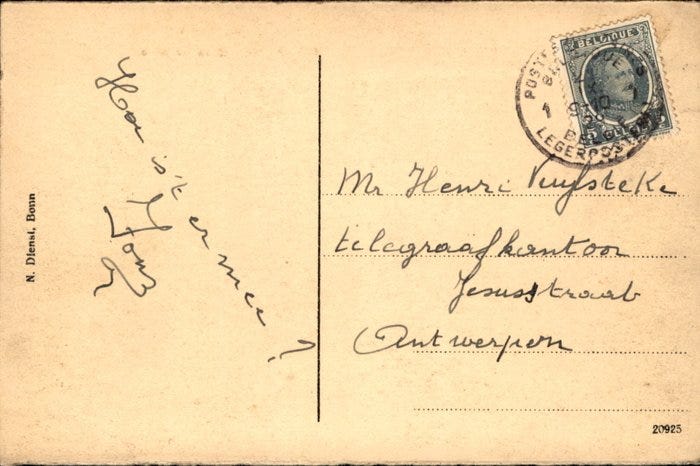 Hoe is't er mee?
N. Dienst, Bonn
BELGIQUE
LEGERPOST
Mr Henri Vuysteke
telegraafkantoor
Jesusstraat
Antwerpen
20925